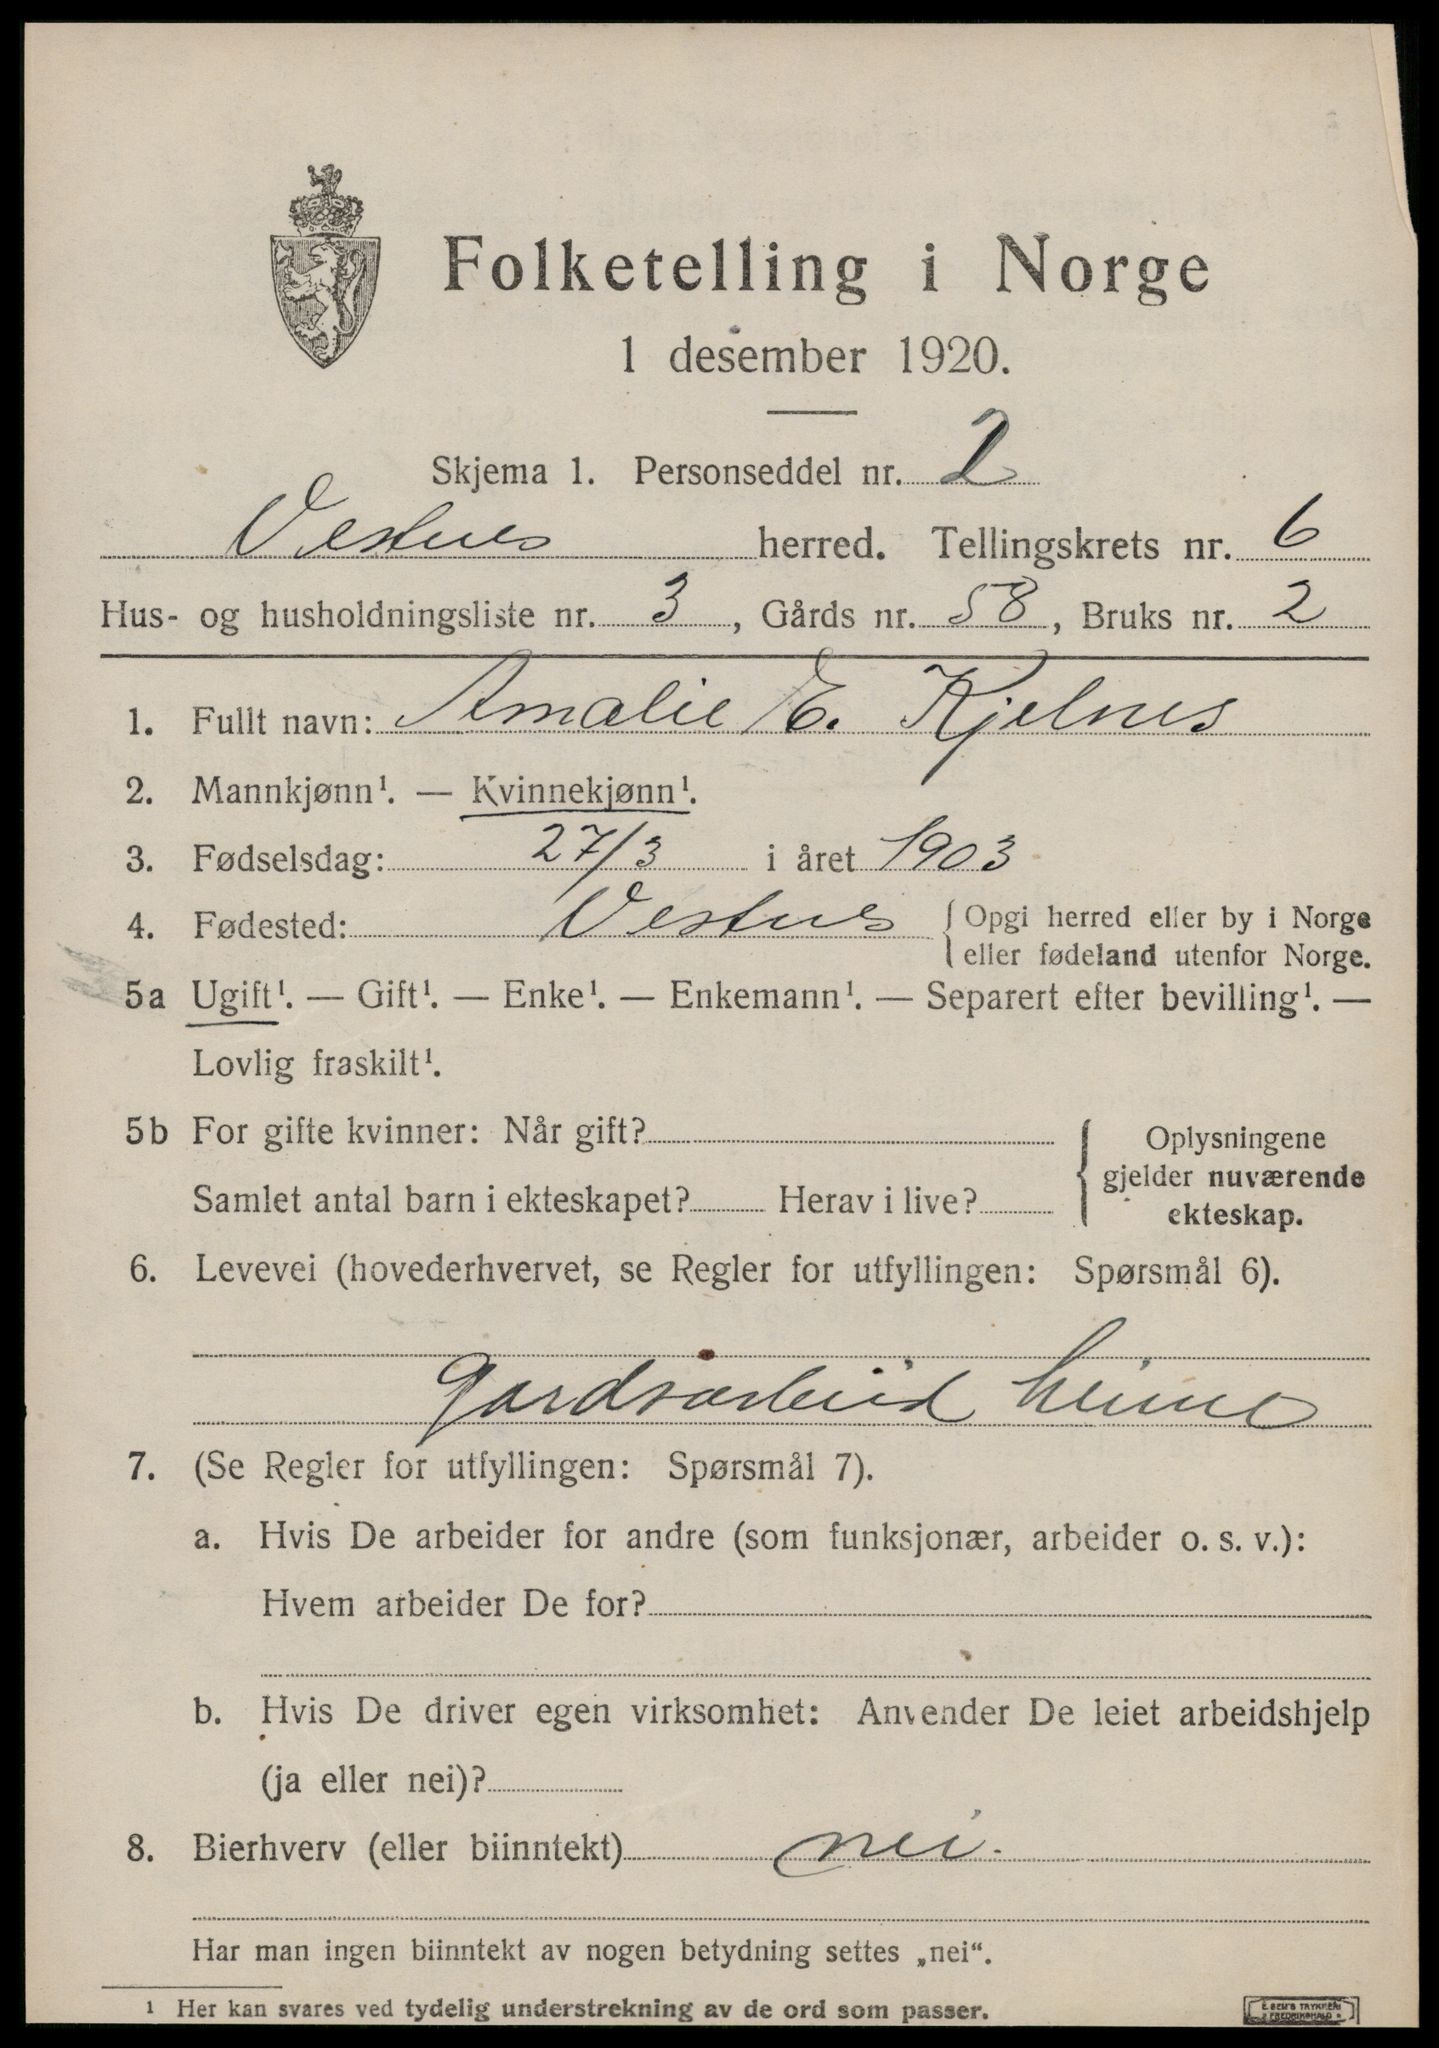 Folketelling i Norge
1 desember 1920.
Skjema 1. Personseddel nr. 2
Vestnes herred. Tellingskrets nr. 6
Hus- og husholdningsliste nr. 3, Gårds nr. 58, Bruks nr. 2
1. Fullt navn: Amalie E. Kjelnes
2. Mannkjønn¹. — Kvinnekjønn¹.
3. Fødselsdag: 27/3 i året 1903
4. Fødested: Vestnes { Opgi herred eller by i Norge
eller fødeland utenfor Norge.
5a Ugift¹. — Gift¹. — Enke¹. — Enkemann¹. — Separert efter bevilling¹. —
Lovlig fraskilt¹.
5b For gifte kvinner: Når gift? { Oplysningene
gjelder nuværende
ekteskap.
Samlet antal barn i ekteskapet? Herav i live?
6. Levevei (hovederhvervet, se Regler for utfyllingen: Spørsmål 6).
gardsarbeid heime
7. (Se Regler for utfyllingen: Spørsmål 7).
a. Hvis De arbeider for andre (som funksjonær, arbeider o. s. v.):
Hvem arbeider De for?
b. Hvis De driver egen virksomhet: Anvender De leiet arbeidshjelp
(ja eller nei)?
8. Bierhverv (eller biinntekt) nei.
Har man ingen biinntekt av nogen betydning settes „nei“.
¹ Her kan svares ved tydelig understrekning av de ord som passer.
E. SEM'S TRYKKERI
FREDRIKSHALD